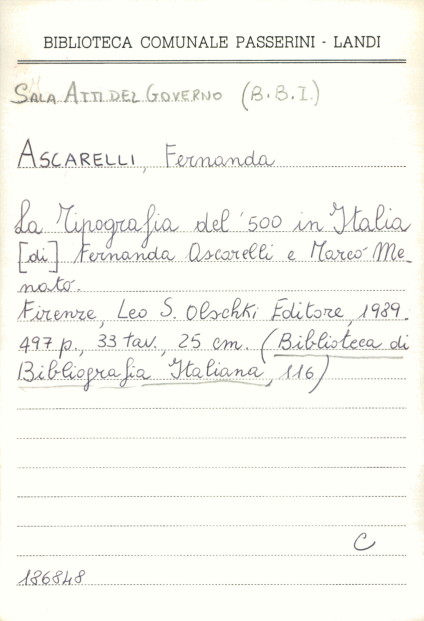 BIBLIOTECA COMUNALE PASSERINI - LANDI
SALA ATTI DEL GOVERNO (B.B.I.)
ASCARELLI, Fernanda
La Tipografia del '500 in Italia
[di] Fernanda Ascarelli e Marco Me-
nato.
Firenze, Leo S. Olschki Editore, 1989.
497 p., 33 tav., 25 cm. (Biblioteca di
Bibliografia Italiana, 116)
C
186848